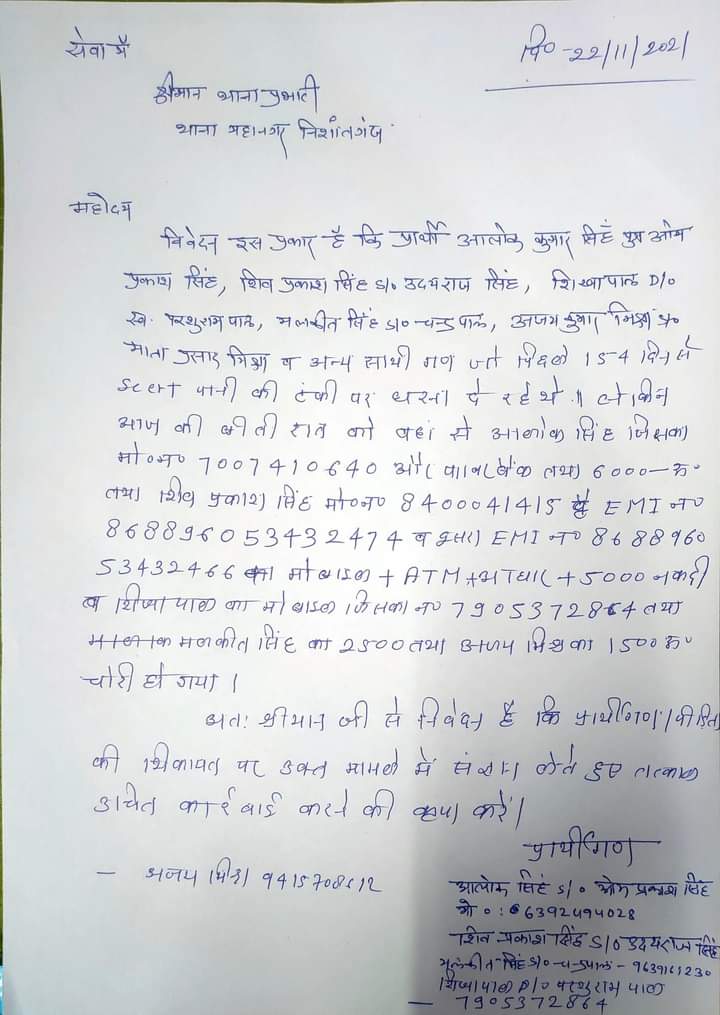 सेवा में
दि० -22/11/2021
श्रीमान थाना प्रभारी
थाना महानगर निशांतगंज
महोदय
निवेदन इस प्रकार है कि प्रार्थी आलोक कुमार सिंह पुत्र ओम
प्रकाश सिंह, शिव प्रकाश सिंह S/o उदयराज सिंह, शिखा पाल D/o
स्व. परशुराम पाल, मलकीत सिंह S/o चन्द्रपाल, अजय कुमार मिश्रा S/o
माता प्रसाद मिश्रा व अन्य साथी गण जो पिछले 154 दिन से
Scert पानी की टंकी पर धरना दे रहे थे॥ लेकिन
आज की बीती रात को वहां से आलोक सिंह जिसका
मो०न० 7007410640 और पावर बैंक तथा 6000-रु०
तथा शिव प्रकाश सिंह मो०न० 8400041415 है EMI न०
868896053432474 व दूसरा EMI न० 8688960
53432466 का मोबाइल + ATM + आधार + 5000 नकदी
व शिखा पाल का मोबाइल जिसका न० 7905372864 तथा
मलकीत सिंह का 2500 तथा अजय मिश्र का 1500 रु०
चोरी हो गया।
अतः श्रीमान जी से निवेदन है कि प्रार्थीगण/पीड़ित
की शिकायत पर उक्त मामले में संज्ञान लेते हुए तत्काल
उचित कार्रवाई करने की कृपा करें।
प्रार्थीगण
- अजय मिश्रा 9415708612
आलोक सिंह S/o ओम प्रकाश सिंह
मो० : 6392494028
शिव प्रकाश सिंह S/o उदयराज सिंह
मलकीत सिंह S/o चन्द्रपाल - 9639161230
शिखा पाल D/o परशुराम पाल
- 7905372864